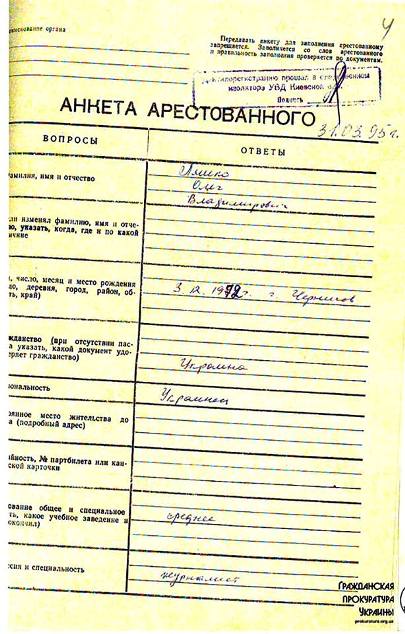 именование органа
4
Передавать анкету для заполнения арестованному
запрещается. Заполняется со слов арестованного
и правильность заполнения проверяется по документам.
прошел в следственном
изоляторе УВД Киевской обл.
Подпись
АНКЕТА АРЕСТОВАННОГО
31.03.95г.
ВОПРОСЫ
ОТВЕТЫ
амилия, имя и отчество
Ляшко
Олег
Владимирович
ли изменял фамилию, имя и отче-
о, указать, когда, где и по какой
ичине
, число, месяц и место рождения
ло, деревня, город, район, об-
ть, край)
3.12.1972г. г. Чернигов
жданство (при отсутствии пас-
а указать, какой документ удо-
еряет гражданство)
Украина
ональность
Украинец
оянное место жительства до
а (подробный адрес)
йность, № партбилета или кан-
ской карточки
ование общее и специальное
ть, какое учебное заведение и
окончил)
среднее
ссия и специальность
журналист
ГРАЖДАНСКАЯ
ПРОКУРАТУРА
УКРАИНЫ
prokuratura.org.ua